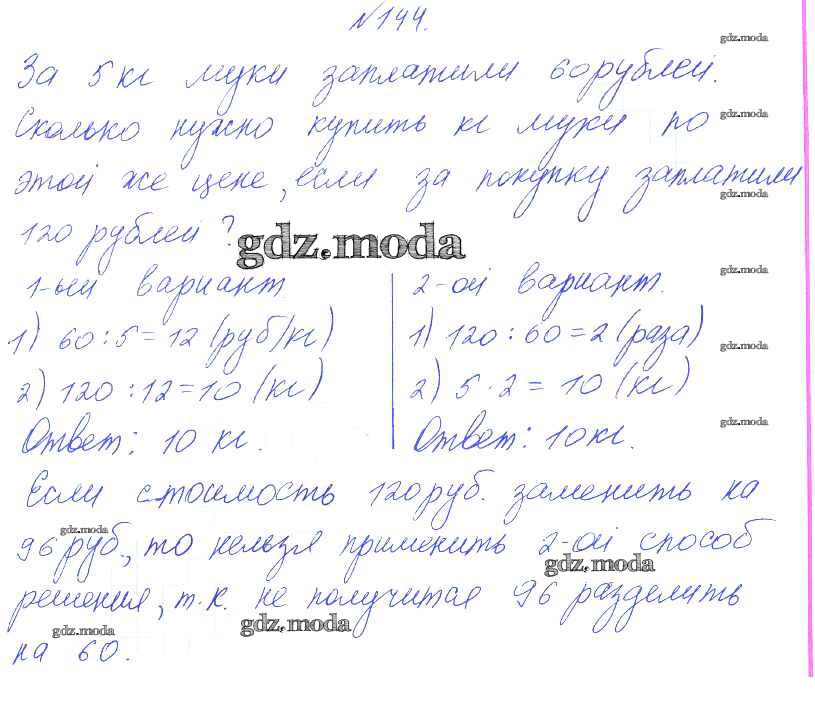 №144.
gdz.moda
За 5 кг муки заплатили 60 рублей.
Сколько нужно купить кг муки по
gdz.moda
этой же цене, если за покупку заплатили
gdz.moda
120 рублей?
gdz.moda
gdz.moda
1-ый вариант
1) 60 : 5 = 12 (руб/кг)
2) 120 : 12 = 10 (кг)
Ответ: 10 кг.
2-ой вариант.
1) 120 : 60 = 2 (раза)
gdz.moda
2) 5 · 2 = 10 (кг)
gdz.moda
Ответ: 10 кг.
Если стоимость 120 руб. заменить на
gdz.moda
96 руб., то нельзя применить 2-ой способ
gdz.moda
решения, т.к. не получится 96 разделить
gdz.moda
gdz.moda
на 60.